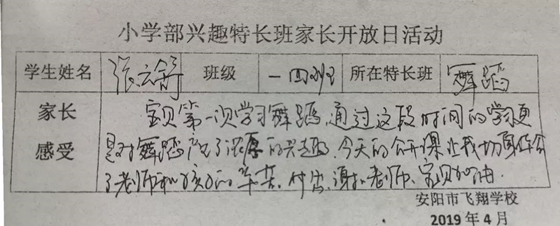 小学部兴趣特长班家长开放日活动
学生姓名 张云舒 班级 一四班 所在特长班 舞蹈
家长 宝贝第一次学习舞蹈,通过这段时间的学习更
感受 是对舞蹈产生了浓厚的兴趣,今天的公开课让我切身体会
了老师和孩子的辛苦、付出,谢谢老师、宝贝加油.
安阳市飞翔学校
2019年4月